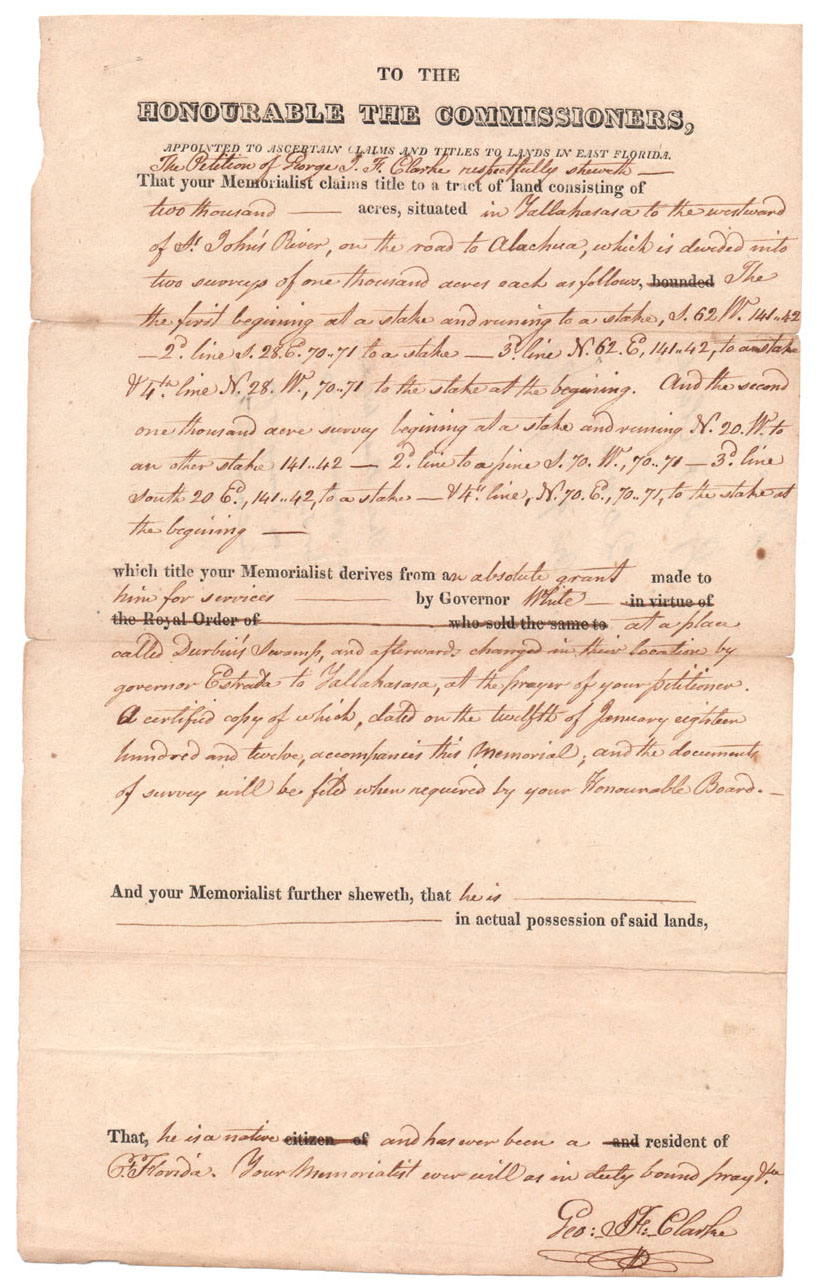 TO THE
HONOURABLE THE COMMISSIONERS,
APPOINTED TO ASCERTAIN CLAIMS AND TITLES TO LANDS IN EAST FLORIDA.
The Petition of George J. F. Clarke respectfully sheweth —
That your Memorialist claims title to a tract of land consisting of
two thousand — acres, situated in Tallahasasa to the westward
of St John's River, on the road to Alachua, which is devided into
two surveys of one thousand acres each as follows, bounded The
the first begining at a stake and runing to a stake, S. 62 W. 141..42
— 2d. line S. 28. E. 70..71 to a stake — 3d. line N. 62. E, 141..42, to a stake
& 4th. line N. 28. W., 70..71 to the stake at the begining. And the second
one thousand acre survey begining at a stake and runing N. 20. W. to
an other stake 141..42 — 2d line to a pine S. 70. W., 70..71 — 3d. line
South 20 Ed., 141..42, to a stake — & 4th. line, N. 70. E., 70..71, to the stake at
the begining —
which title your Memorialist derives from an absolute grant made to
him for services — by Governor White — in virtue of
the Royal Order of who sold the same to at a place
called Durbin's Swamp, and afterwards changed in their location by
governor Estrada to Tallahasasa, at the prayer of your petitioner.
A certified copy of which, dated on the twelfth of January eighteen
hundred and twelve, accompanies this Memorial; and the documents
of survey will be filed when required by your Honourable Board. —
And your Memorialist further sheweth, that he is —
— in actual possession of said lands,
That, he is a native citizen of and has ever been a and resident of
E. Florida. Your Memorialist ever will as in duty bound pray &a.
Geo: J. F. Clarke